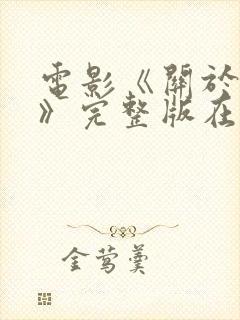 電影《關於
》完整版在
金鶯羹